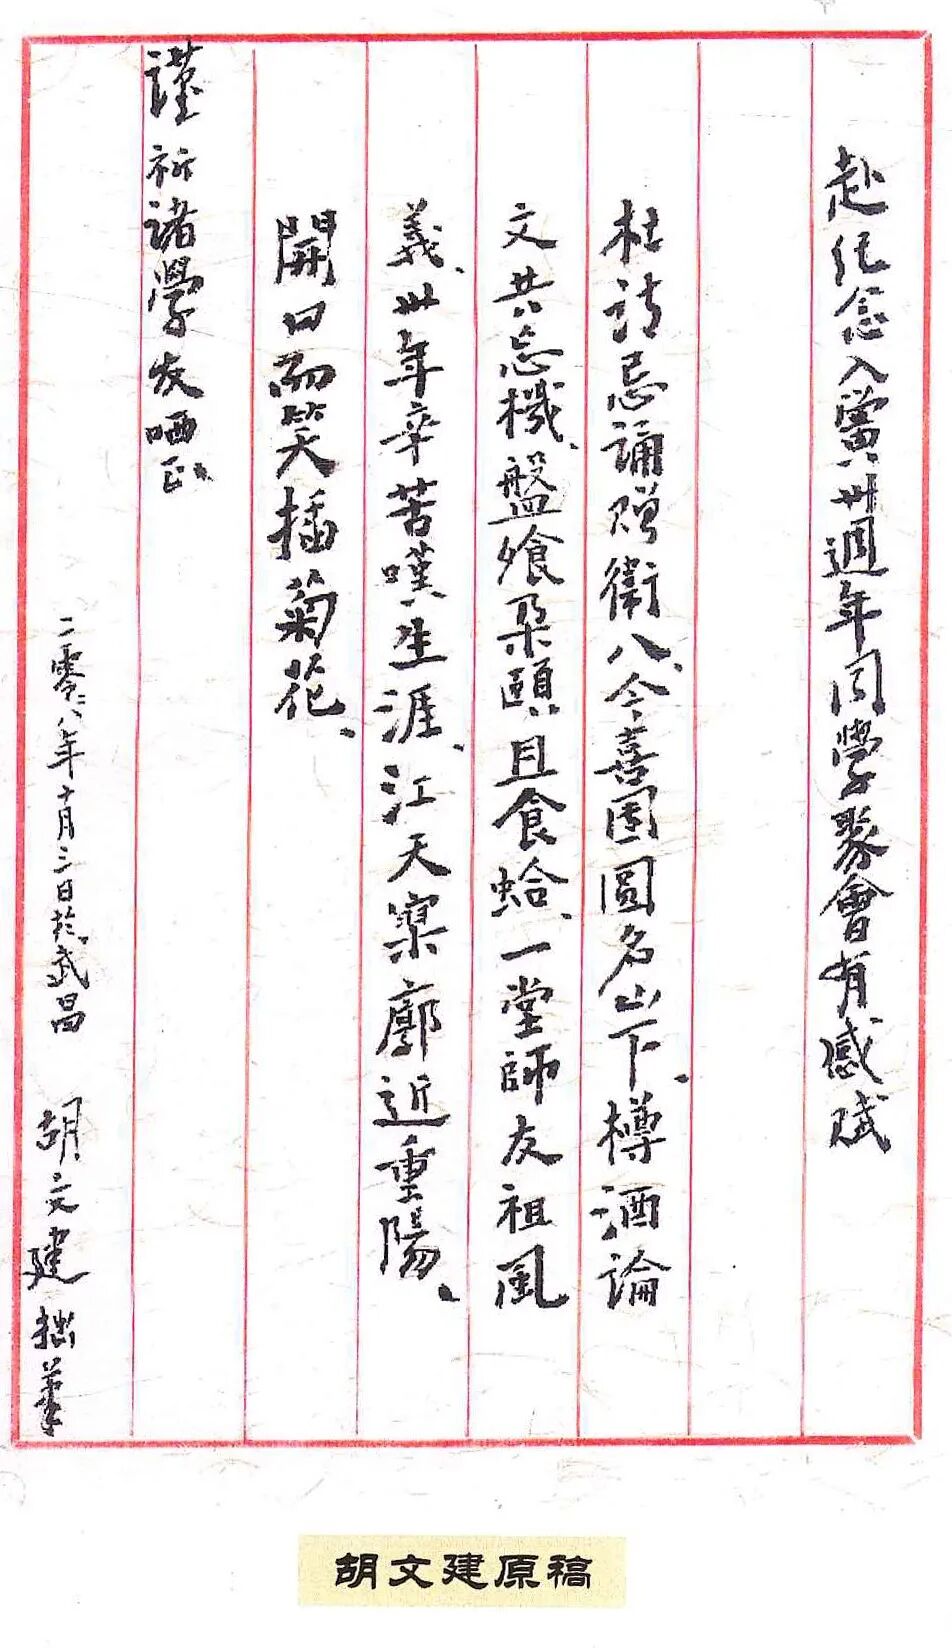 赴纪念入黌卅週年同學聚會有感賦
杜詩忌誦贈衛八、今喜團圓名山下、樽酒論
文共忘機、盤飧朵頤且食蛤、一堂師友祖風
義、卅年辛苦嘆生涯、江天寥廓近重陽、
開口而笑插菊花、
謹祈諸學友哂正、
二零零八年十月三日於武昌 胡文建拙筆
胡文建原稿